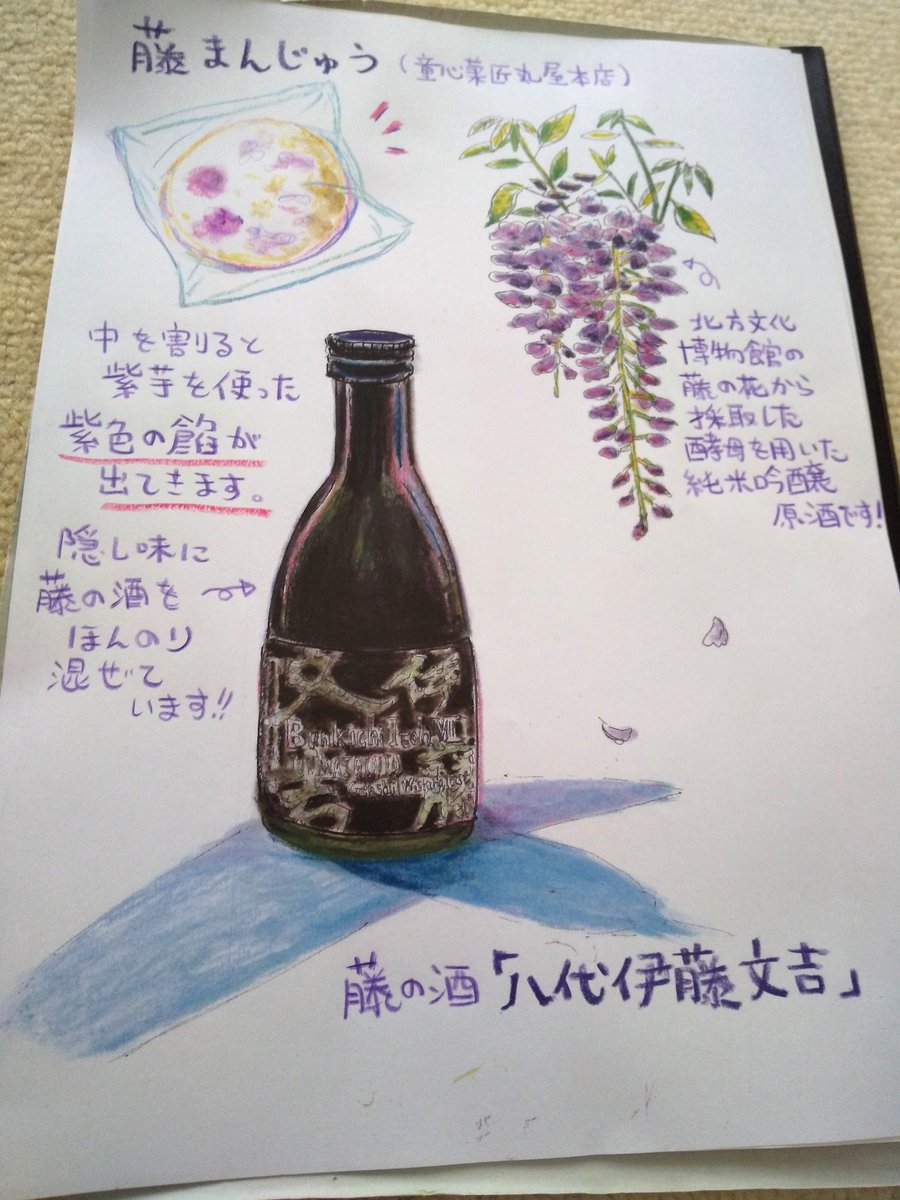 藤まんじゅう(童心菓匠丸屋本店)
中を割ると
紫芋を使った
紫色の餡が
出てきます。
隠し味に
藤の酒を
ほんのり
混ぜて
います!!
北方文化
博物館の
藤の花から
採取した
酵母を用いた
純米吟醸
原酒です!
伊藤
文吉
Bunkichi Itoh VIII
藤の酒「八代伊藤文吉」